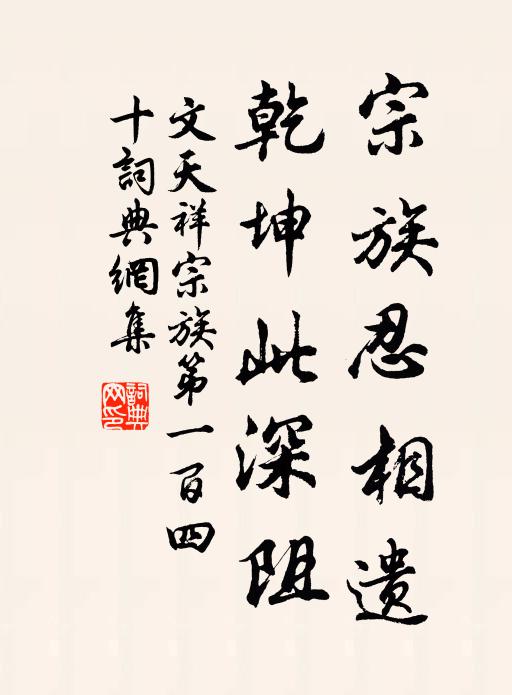 宗族忍相遗
乾坤此深阻
文天祥宗族第一百四
十詞典網集
詞典網印